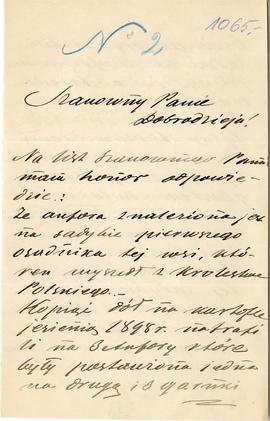 1065.-
No 2
Szanowny Panie
Dobrodzieju!
Na list Szanownego Pana
mam honor odpowie-
dzieć:
że anfora znaleziona jest
na sadybie pierwszego
osadnika tej wsi, któ-
ren wyszedł z Królestwa
Polskiego.-
Kopiąc dół na kartofle
jesienią 1898r. natrafi-
li na 3 Anfory które
były postawione jedna
na drugą i 3 garnki